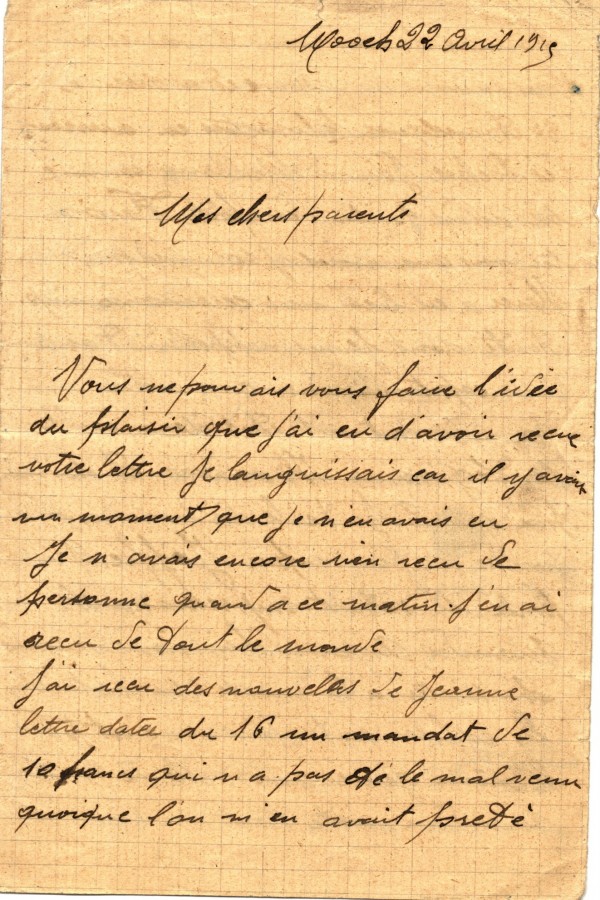 Mooch 22 Avril 1915
Mes chers parents
Vous ne pouvais vous faire l'idée
du plaisir que j'ai eu d'avoir recue
votre lettre Je languissais car il y avait
un moment que Je n'en avais eu
Je n'avais encore rien recu de
personne quand a ce matin J'en ai
recu de tout le monde
J'ai recu des nouvelles de Jeanne
lettre datée du 16 un mandat de
10 francs qui n'a pas été le mal venu
quoique l'on m'en avait preté